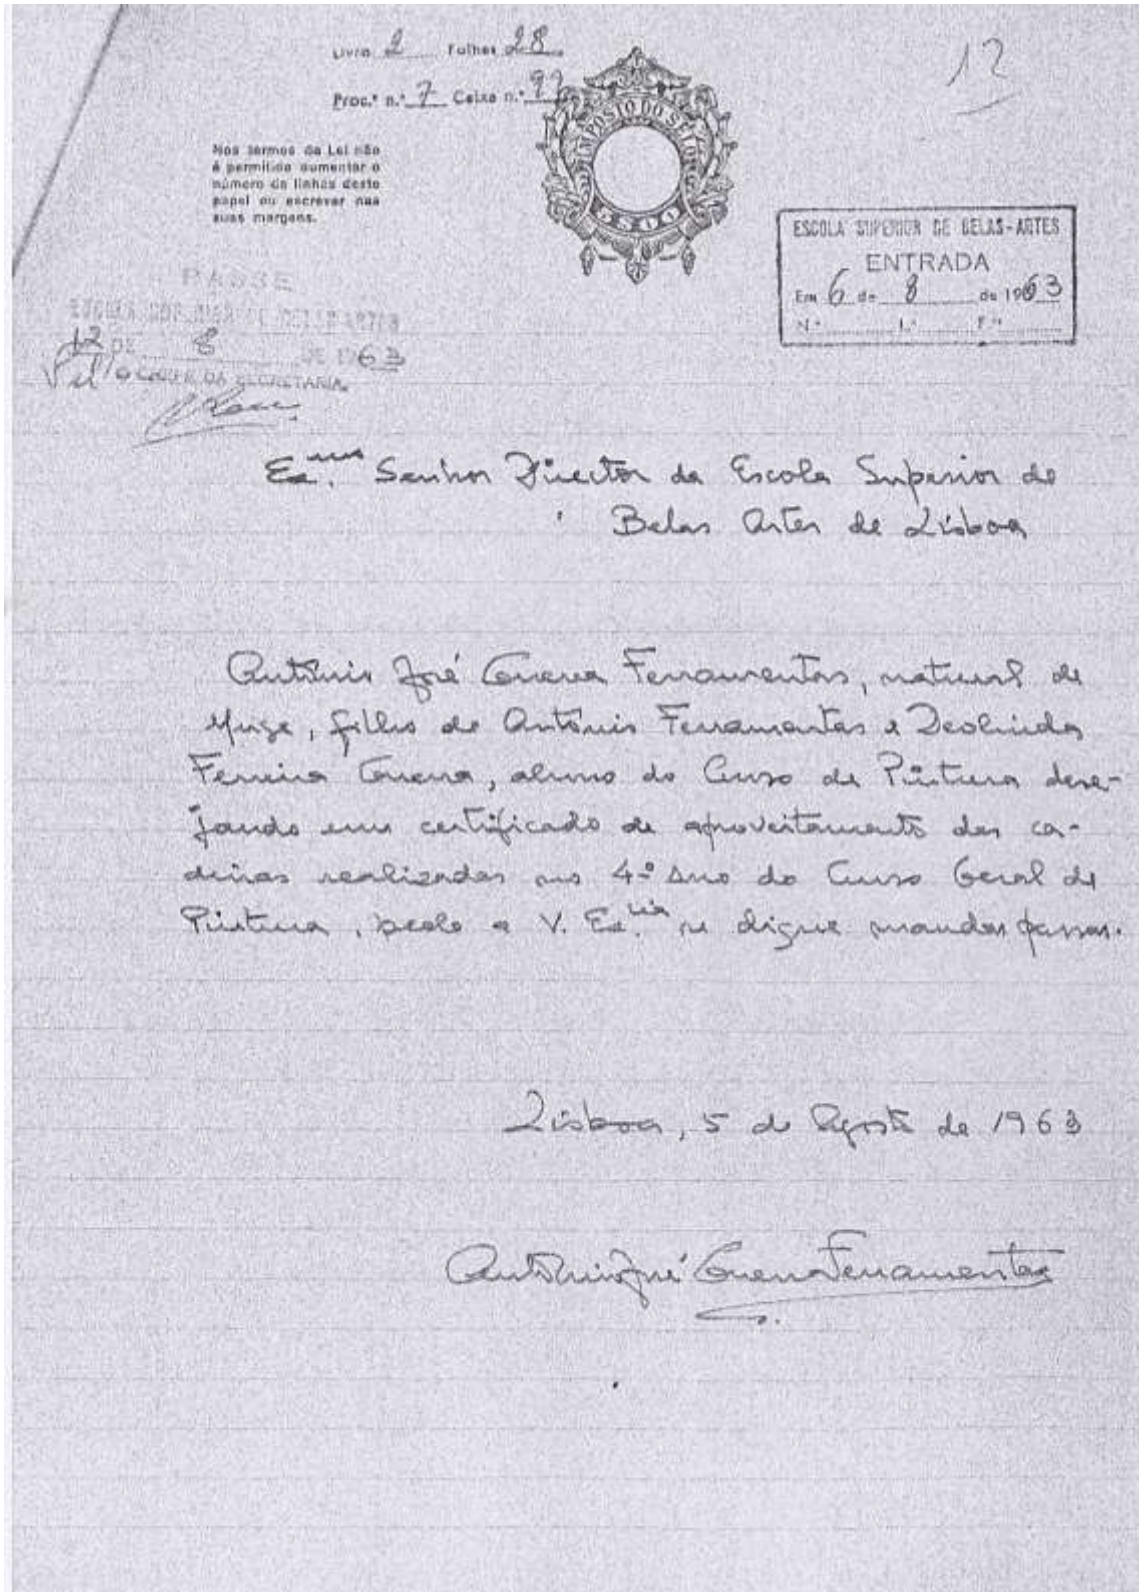 Livro 2 Folhas 28
Proc.º n.º 7 Caixa n.º 97
12
Nos termos da Lei não
é permitido aumentar o
número de linhas deste
papel ou escrever nas
suas margens.
IMPOSTO DO SELO
5$00
ESCOLA SUPERIOR DE BELAS-ARTES
ENTRADA
Em 6 de 8 de 1963
N.º L.º F.º
PASSE
ESCOLA SUPERIOR DE BELAS ARTES
12 DE 8 DE 1963
Pel' O CHEFE DA SECRETARIA,
Ex.mo Senhor Director da Escola Superior de
Belas Artes de Lisboa
António José Guerra Ferramentas, natural de
Muge, filho de António Ferramentas e Deolinda
Ferreira Guerra, aluno do Curso de Pintura dese-
jando um certificado de aproveitamento das ca-
deiras realizadas no 4º Ano do Curso Geral de
Pintura, pede a V. Ex.cia se digne mandar passar.
Lisboa, 5 de Agosto de 1963
António José Guerra Ferramentas